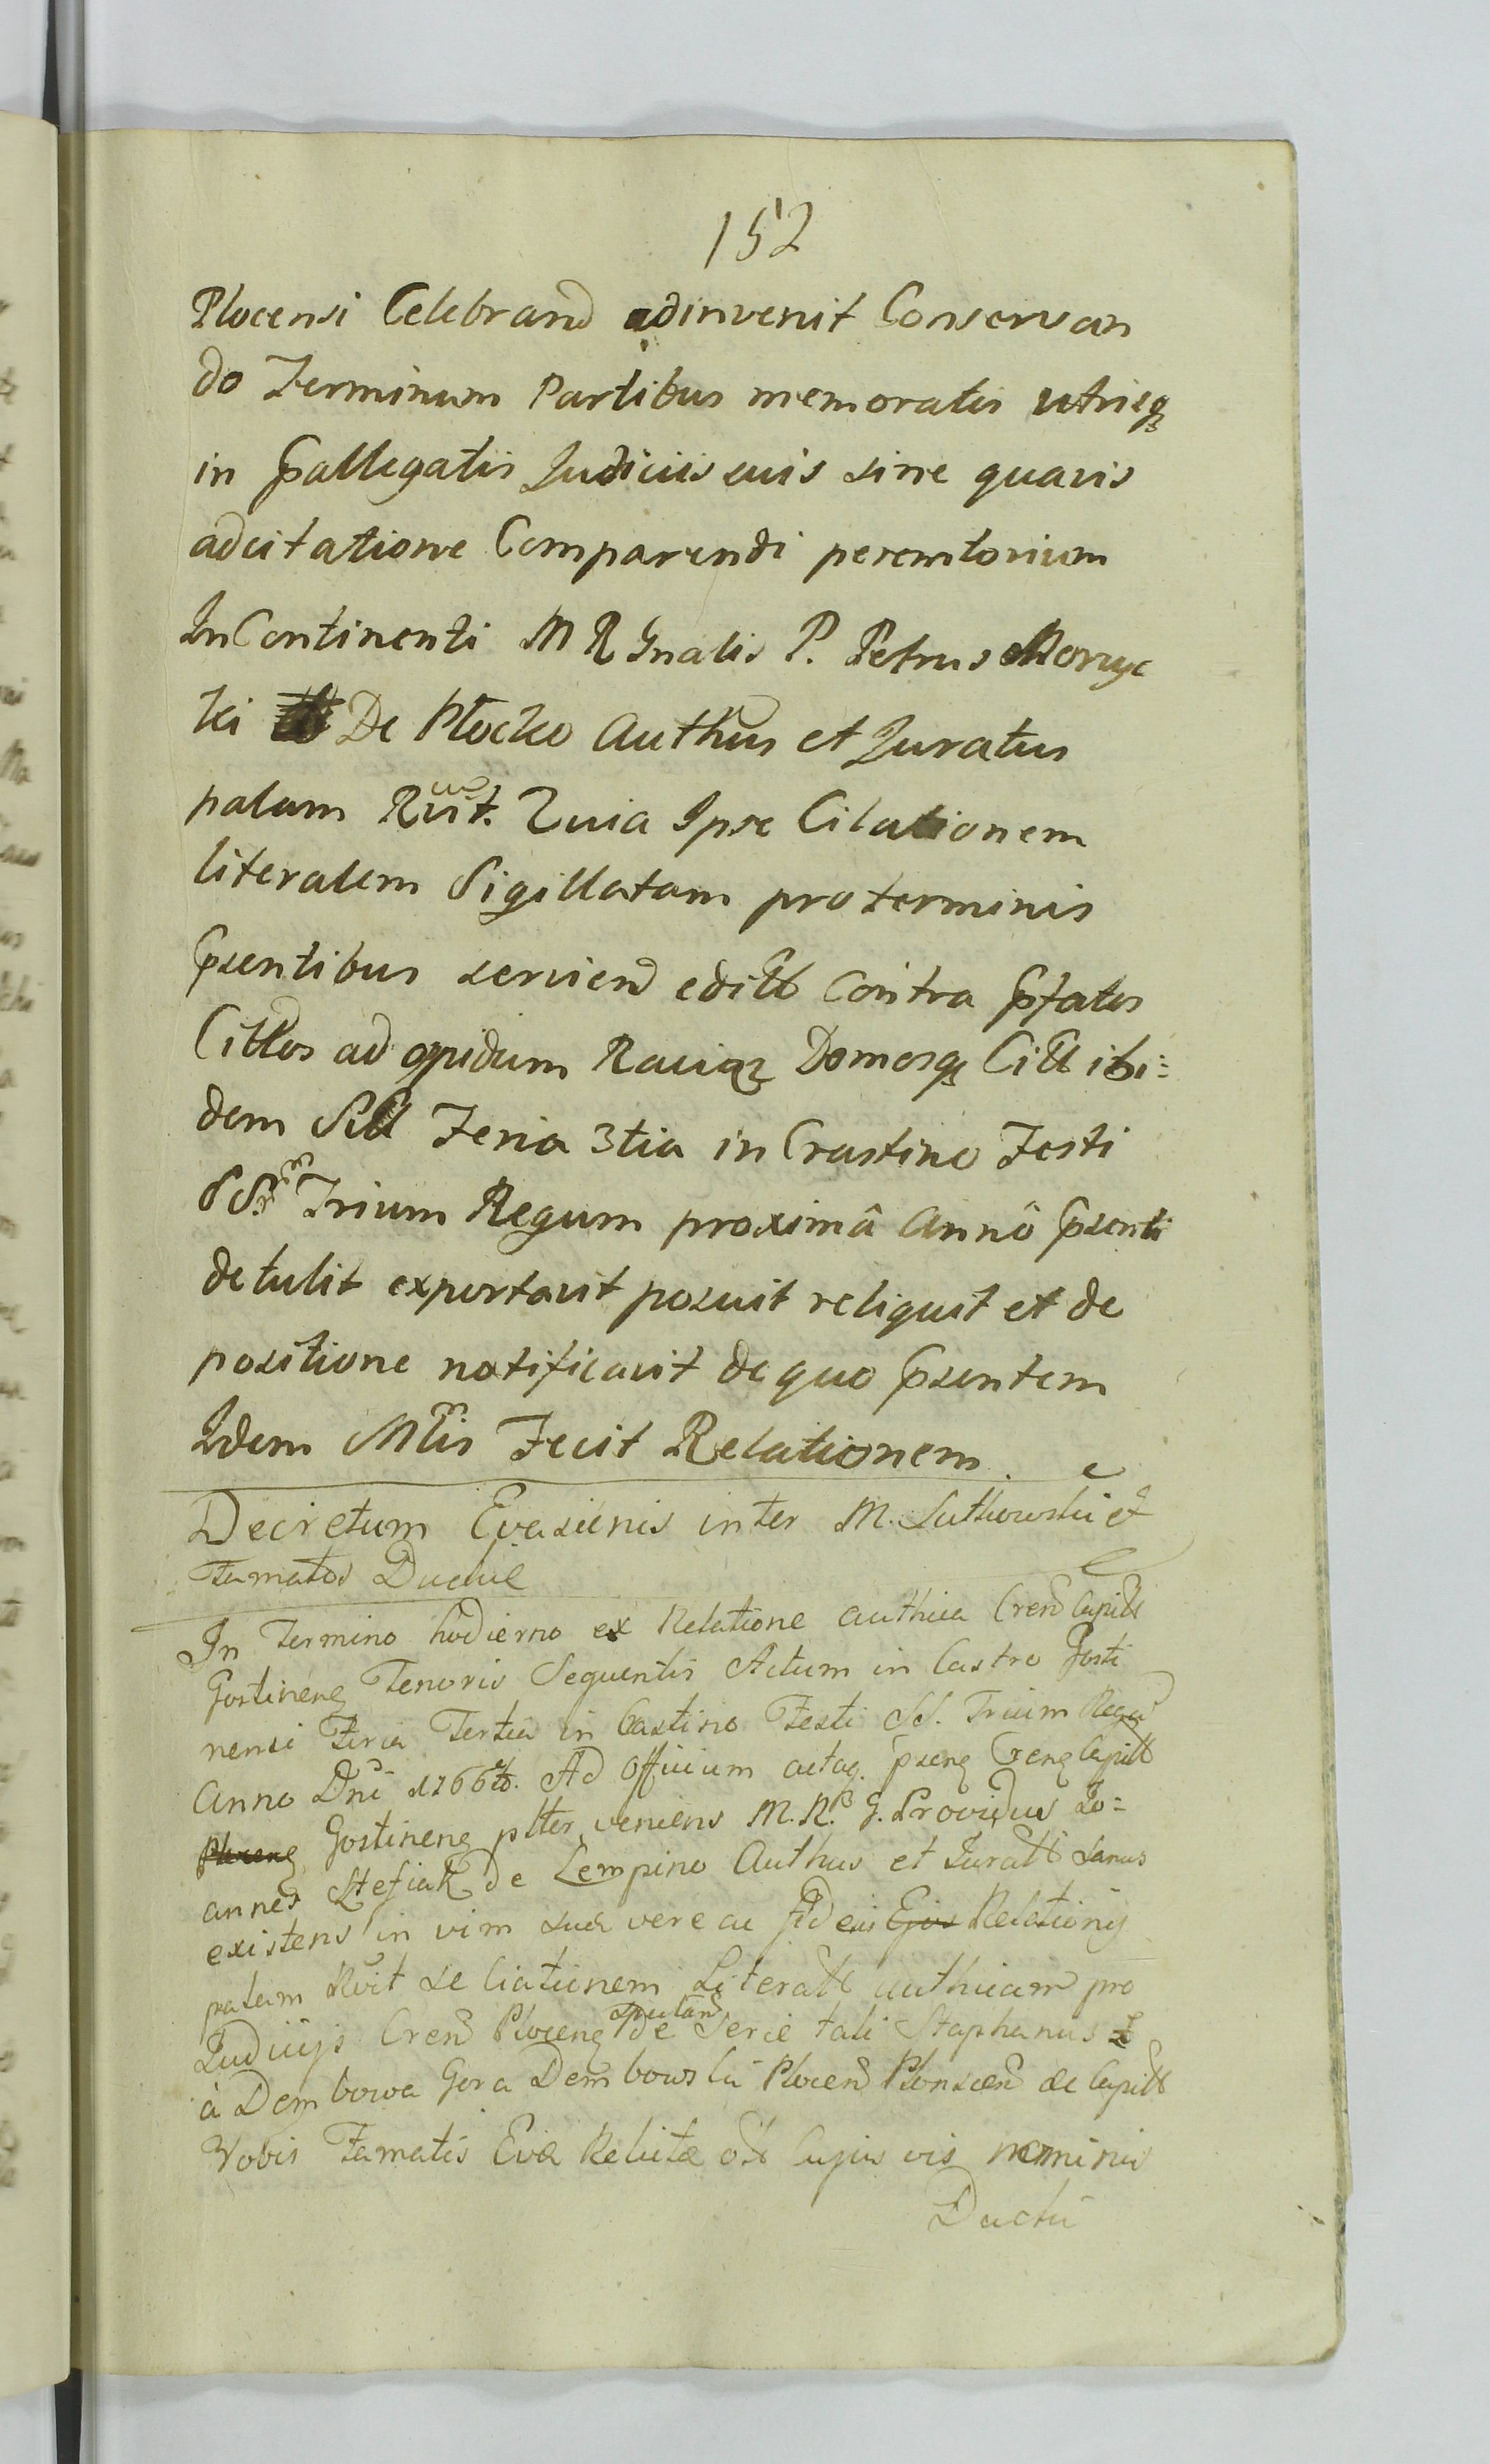 152
Plocensi Celebrand adinvenit Conservan
do Terminum Partibus memoratis utrisq
in pallegatis Judiciis suis sine quavis
adcitatione Comparendi peremtorium
InContinenti M R Gnalis P. Petrus Moryc
ki De Plocko Authus et Juratus
palam Rvit. Quia Ipse Citationem
literalem Sigillatam pro terminis
psentibus serviend editt contra pfatos
Cittos ad opidum Raciąz Domosq Citt ibi=
dem Sitt Feria 3tia in Crastino Festi
SS. Trium Regum proximâ annô psenti
detulit exportavit posuit reliquit et de
positione notificavit de quo psentem
Idem Mlis Fecit Relationem.
Decretum Evasionis inter M. Sutkowski et
Famatos Duckie
In Termino hodierno ex Relatione authica Cren Capitt
Gostinen Tenoris Sequentis Actum in Castro Gosti
nensi Feria Tertia in Castino Festi SS. Trium Regu
Anno Dni 1766to. Ad Officium actaq. psens Cren Capitt
Plocen Gostinen pltter veniens M. R. G. Providus Jo=
annes Stefiak de Lempino Authus et Juratt sanus
existens in vim suæ veræ ac fideis Ejus Relationis
palam Rvit se Ciationem Literatt authicam pro
Judicijs Cren Plocens spectan de Serie tali Staphanus
à Dembowa Gora Dembowski Plocen Plonscen &c Capitt
Vobis Famatis Evæ Relictæ ost Cujus vis nominis
Duckii